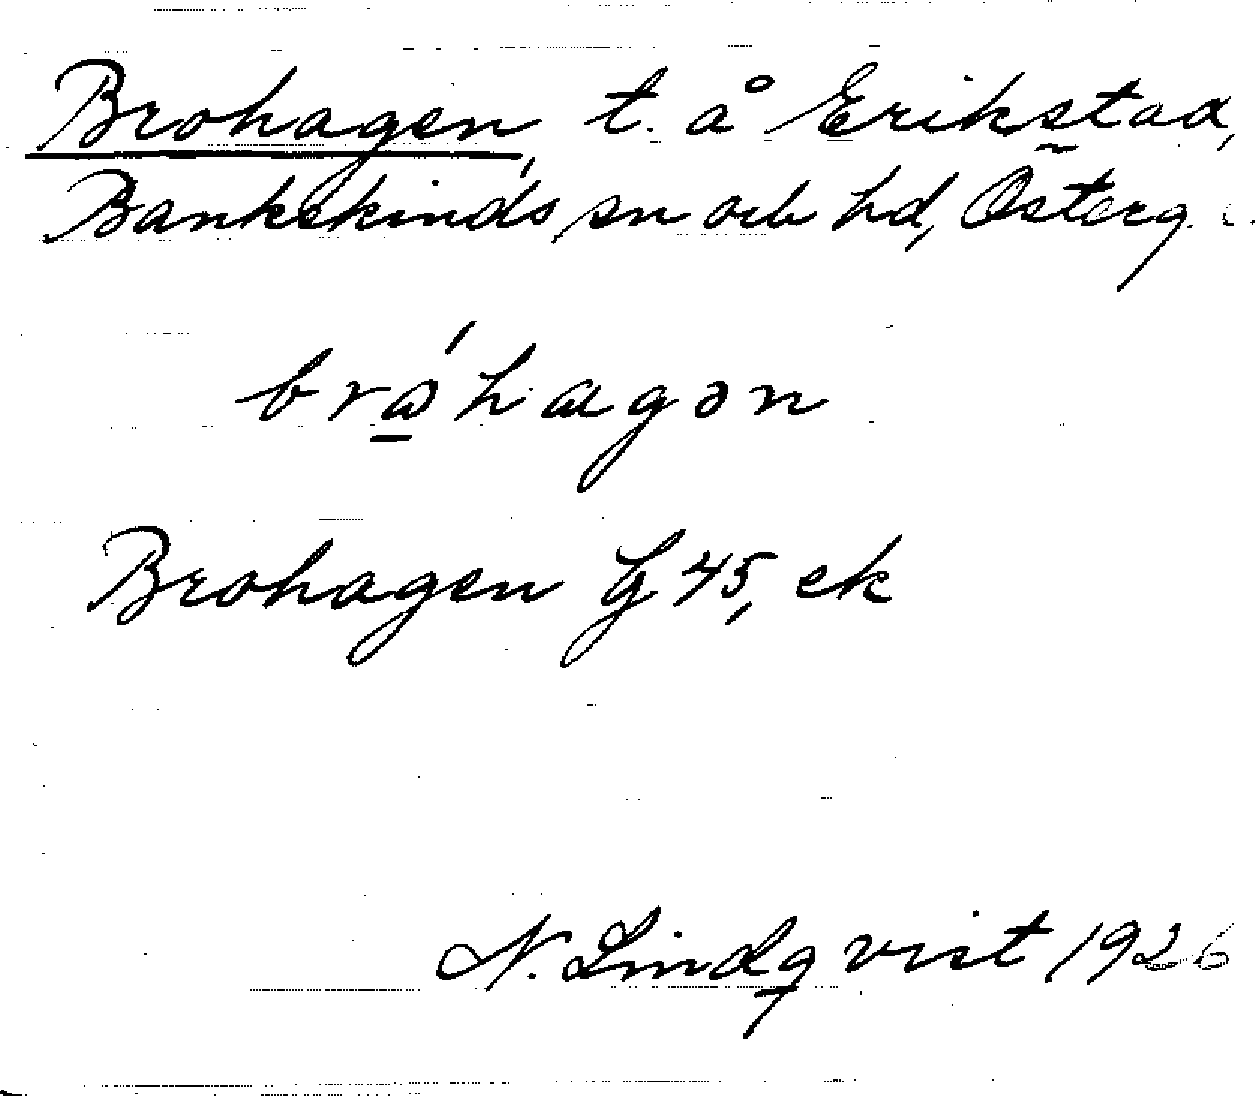 Brohagen, t. å Erikstad,
Bankekinds sn och hd, Österg.
brώ̲hagən
Brohagen G 45, ek
N. Lindqvist 1926